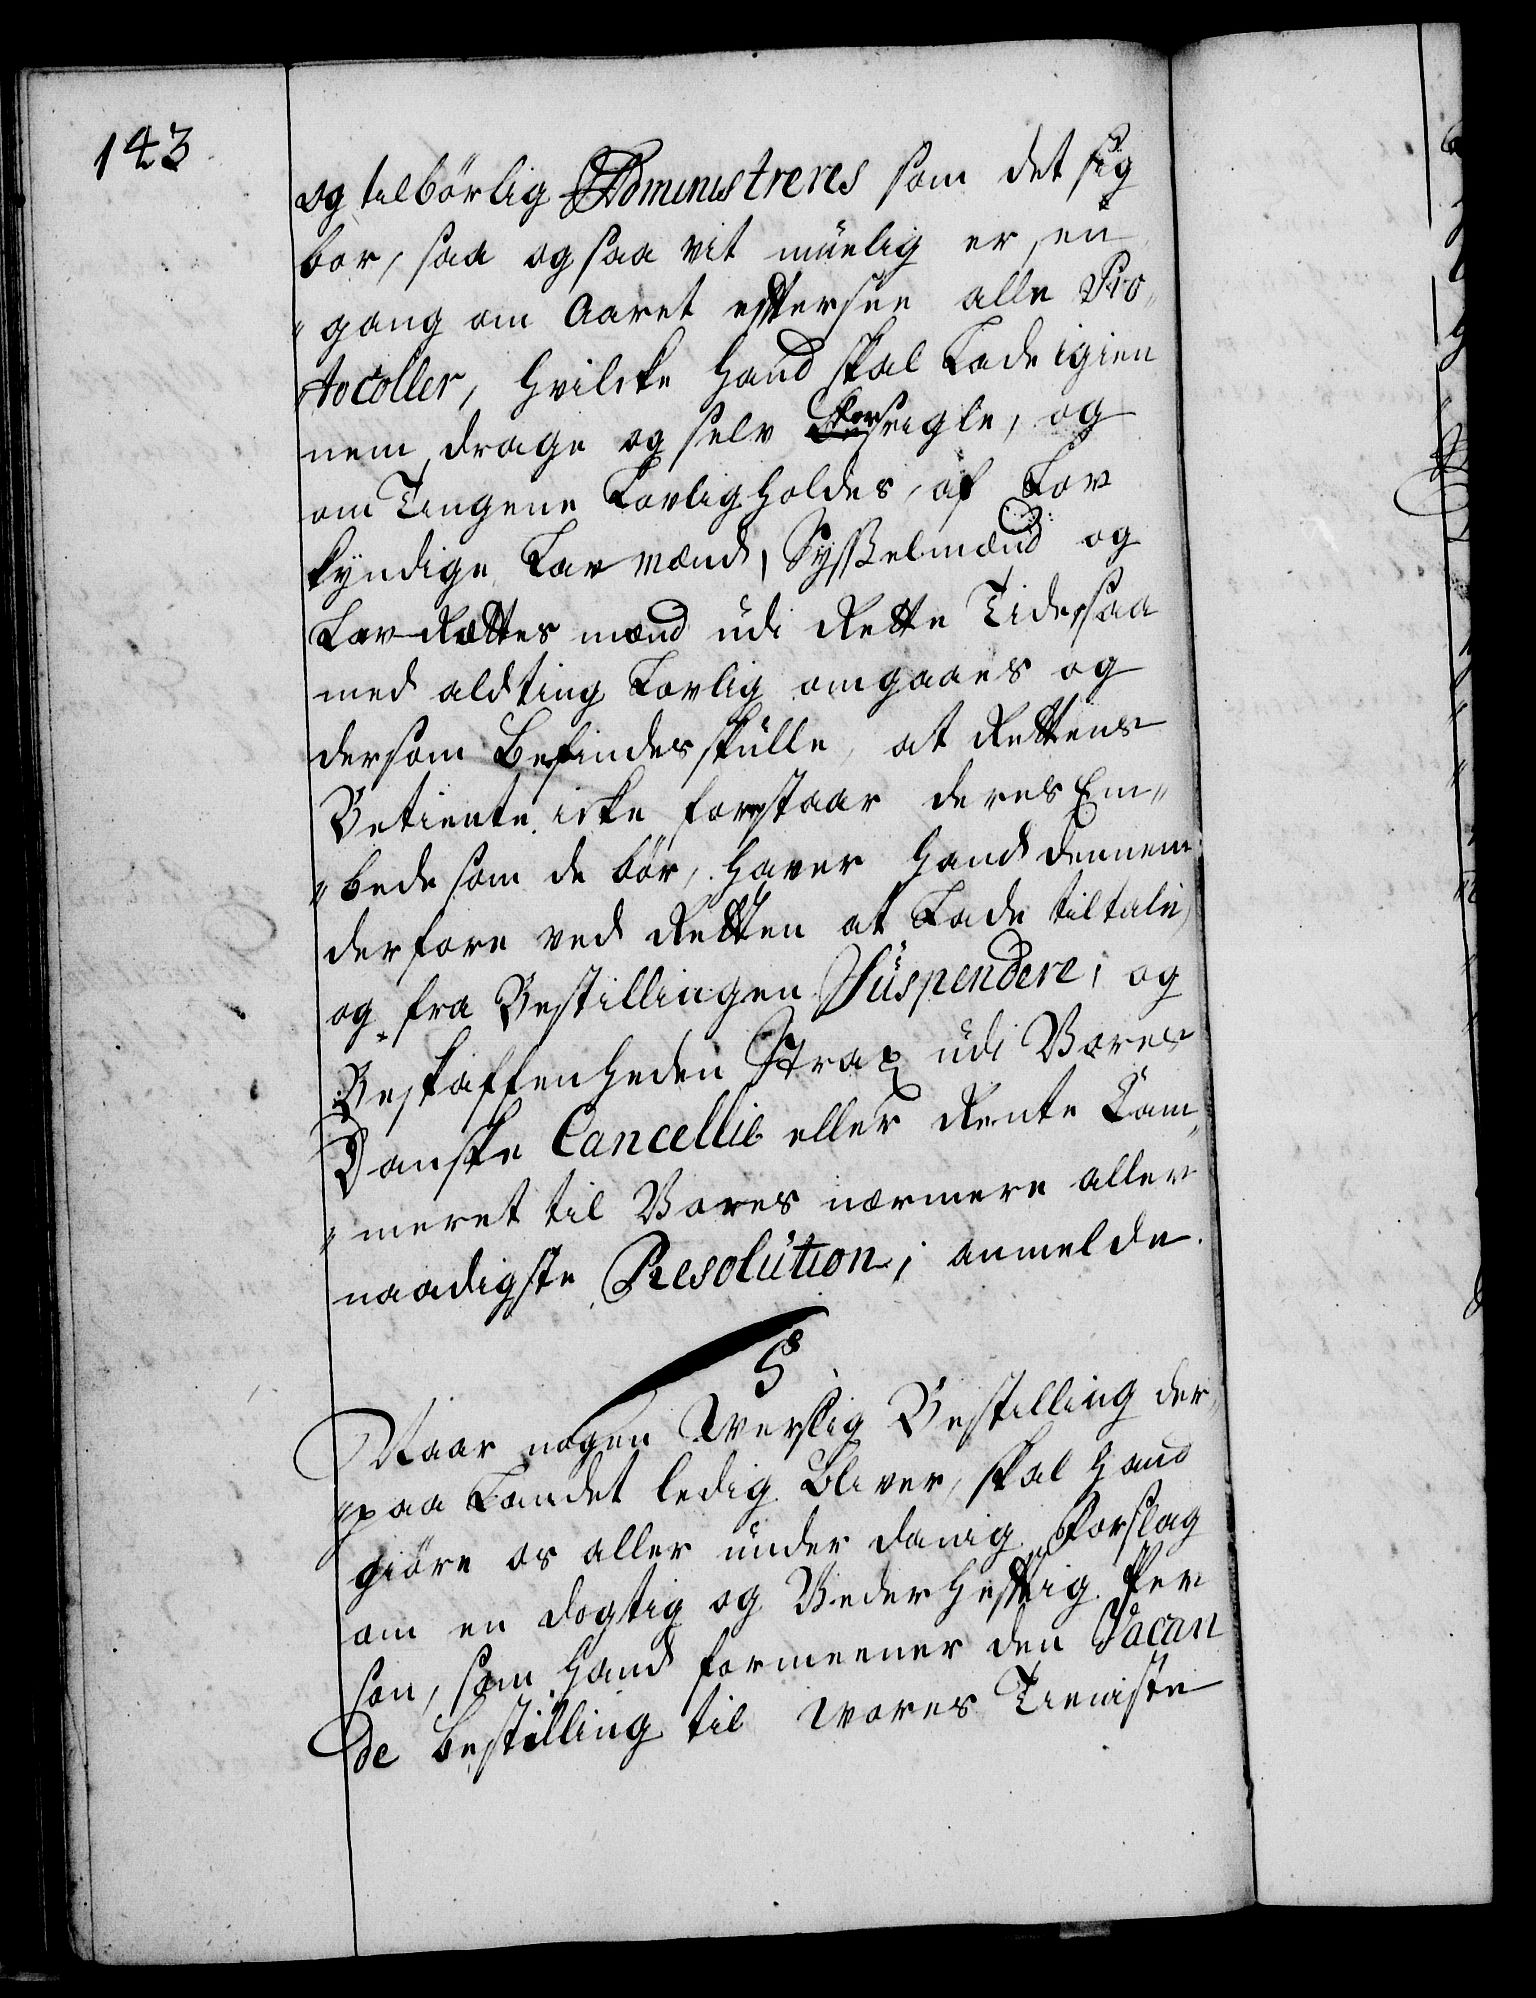 143
og tilbörlig Administreres som det sig
bor, saa og saa vit müelig er, en
" gang om Aaret eftersee alle Pro"
"tocoller, hvilcke hand skal Lade igien
nem drage og selv forseigle, og
om Tingene Lovlig holdes, af Lov
kyndige Lav mænd, Sysselmænd og
Lav Rættes mænd udi Rette Tide, saa
med aldting Lovlig omgaaes og
dersom Befindes skulle, at Rettens
Betiente icke forestaar deres Em"
"bede som de bör, haver hand dennem
derfore ved Retten at Lade tiltale,
og fra Bestillingen Süspendere, og
Beskaffenheden Strax udi Vores
Danske Cancellie eller Rente Cam"
"meret til Vores nærmere aller
naadigste Resolution, anmelde.
5
Naar nogen Verslig Bestilling der"
"paa Landet ledig Bliver, skal hand
giöre os aller under danig Forslag
om en dögtig og Vederheftig Per
son, som hand formeener den Vacan
de bestilling til vores Tieniste